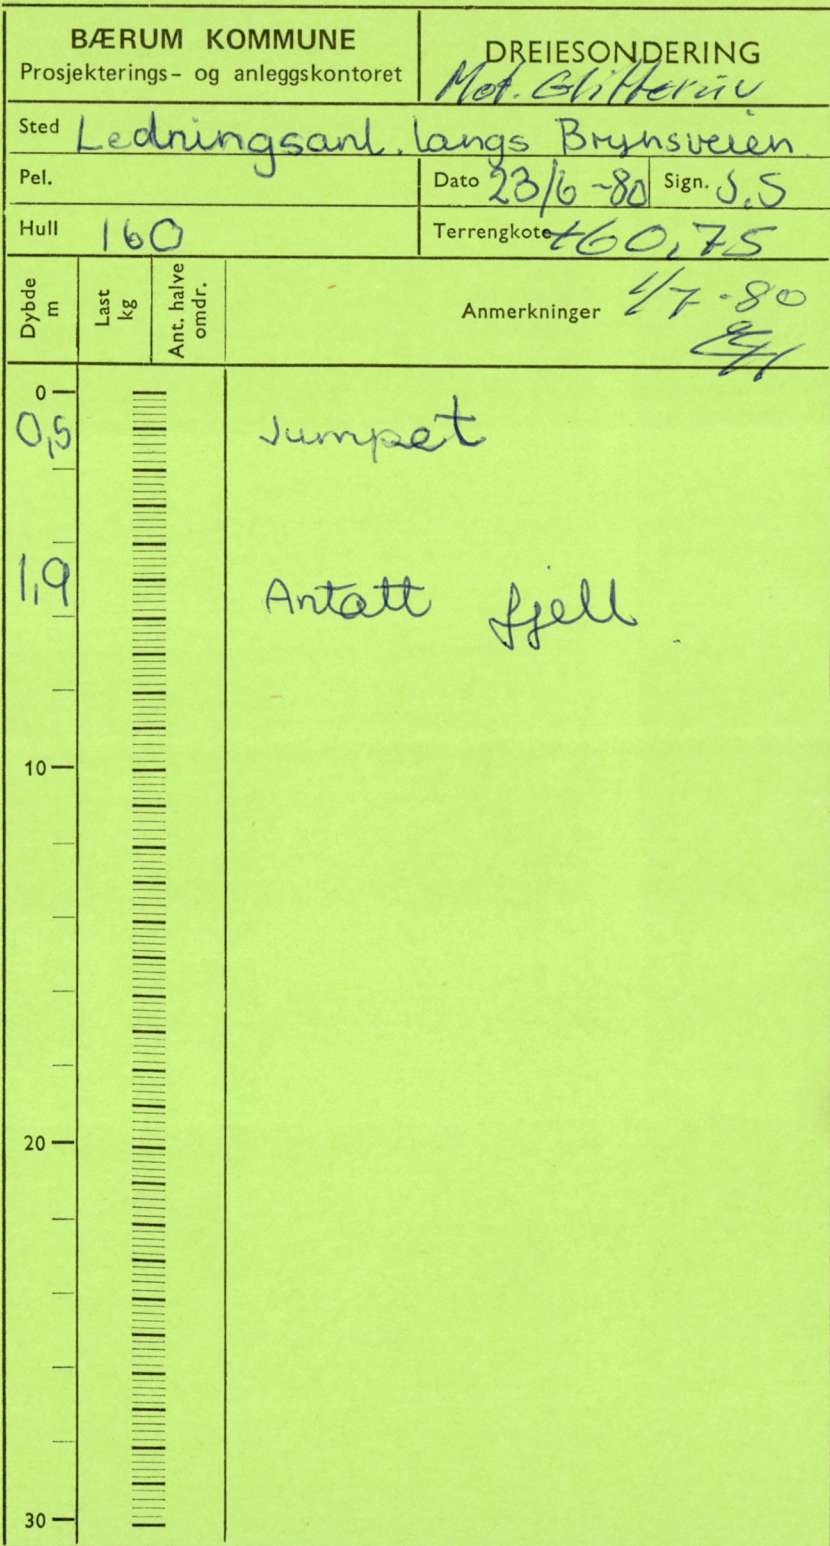 BÆRUM KOMMUNE
Prosjekterings- og anleggskontoret
DREIESONDERING
Mot.
Sted Ledningsanl. langs Brynsveien
Pel.
Dato 23/6 -80 Sign. J.S
Hull 160
Terrengkote +60,75
Dybde m
Last kg
Ant. halve omdr.
Anmerkninger 1/7-80
0
0,5 Jumpet
1,9 Antatt fjell
10
20
30